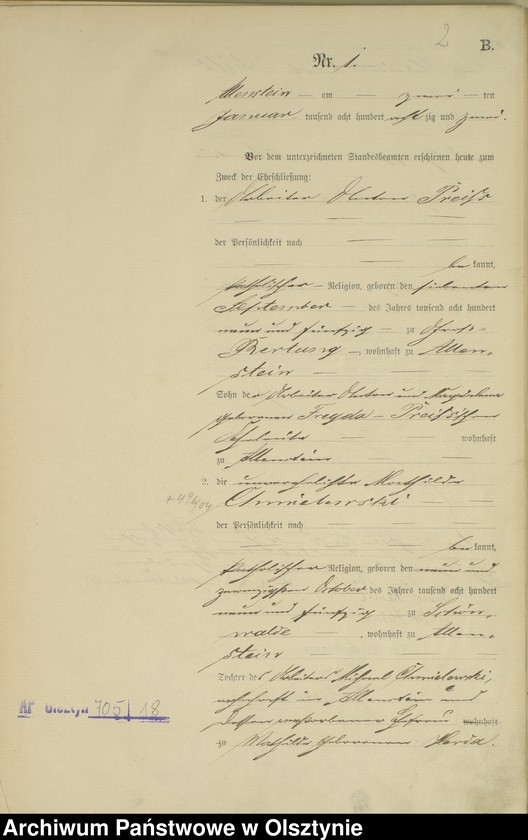 2
B.
Nr. 1.
Allenstein — am — zwei — ten
Januar tausend acht hundert acht zig und zwei.
Vor dem unterzeichneten Standesbeamten erschienen heute zum
Zweck der Eheschließung:
1. der Arbeiter Anton Preiss
der Persönlichkeit nach
be kannt,
katholischer — Religion, geboren den siebenten
September — des Jahres tausend acht hundert
neun und fünfzig — zu Gross-
Bertung —, wohnhaft zu Allen-
stein
Sohn der Arbeiter Anton und Magdalena
geborenen Freyda — Preiss'schen
Eheleute wohnhaft
zu Allenstein
2. die unverehelichte Mathilde
+ 496/04
Chmielewski
der Persönlichkeit nach
be kannt,
katholischer Religion, geboren den neun und
zwanzigsten October des Jahres tausend acht hundert
neun und fünfzig zu Schön-
walde —, wohnhaft zu Allen-
stein
Tochter des Arbeiters Michael Chmielewski,
wohnhaft in Allenstein und
dessen verstorbener Ehefrau wohnhaft
zu Mathilde geborenen
AP Olsztyn 705/18
Archiwum Państwowe w Olsztynie